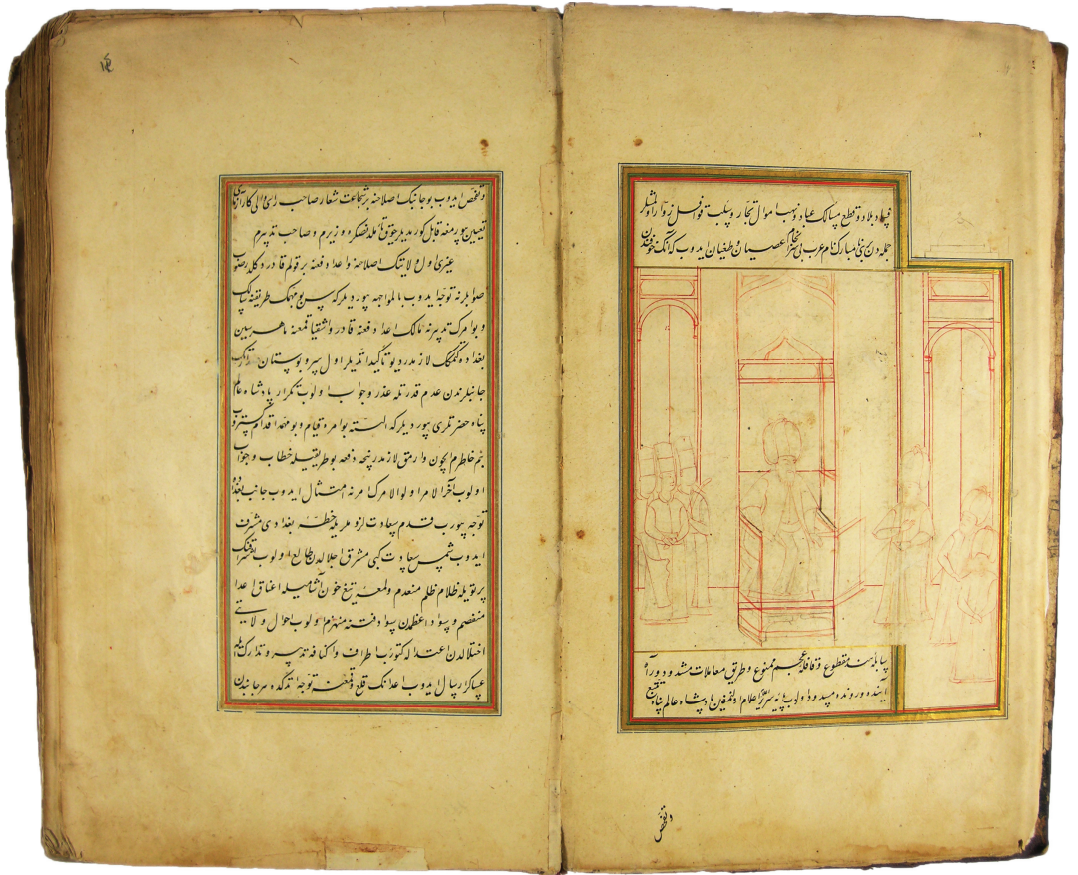 فساد بلاد و قطع مسالک عباد و نهب اموال تجار و سلب قوافل زوار اولمشلر
جمله دن بنی مبارک نام عرب بی سرانجام عصیان و طغیان ایدوب که انک خوفندن
سابله سند مقطوع و قافله عجم ممنوع و طریق معاملات مسدود و
آینده و رونده مسدود اولوب پایه سریر اعلام اولندقین پادشاه عالم پناه تتبع
و تفحص
و تفحص ایدوب بو جانبک اصلاحنه بر شجاعت شعار صاحب رای
تعیین بیورمغه قابل کورمدیلر حقوق امله تفکر و وزیرم و صاحب تدبیرم
غیری اول ولایتک اصلاحنه و اعدا دفعنه بر قولم قادر دکلدر صوب
صوابلرنه توجه ایدوب بالمواجهه بیوردیلر که پس بو مهمک طریقنه سالک
و بو امرک تدبیرنه مالک اعدا دفعنه قادر و اشقیا قمعنه ماهر سین
بغداده کتمک لازمدر دیو تاکید ایتدیلر اول سرو بوستان
جانبلرندن عدم قدرتله عذر و جواب اولوب تکرار پادشاه عالم
پناه حضرتلری بیوردیلر که البته بو امره قیام و بو مهمه اقدام کستروب
بنم خاطرم ایچون وارمق لازمدر نیجه دفعه بو طریقیله خطاب و جواب
اولوب آخر الامر اولوا الامرک امرنه امتثال ایدوب جانب بغداده
توجه بیورب قدم سعادت لزوملریله خطه بغدادی مشرف
ایدوب شمس سعادت کبی مشرق اجلالدن طالع اولوب تیغنک
پرتویله ظلام ظلم منعدم و لمعه تیغ خون آشامیله اعناق اعدا
منفصم و سواد اعظمدن سواد فتنه منهزم اولوب احوال ولایتی
اختلالدن اعتداله کتورب اطراف و اکنافه تدبیر و تدارک
عساکر ارسال ایدوب اعدانک قلع و قمعنه توجه ایتدکده هر جانبدن